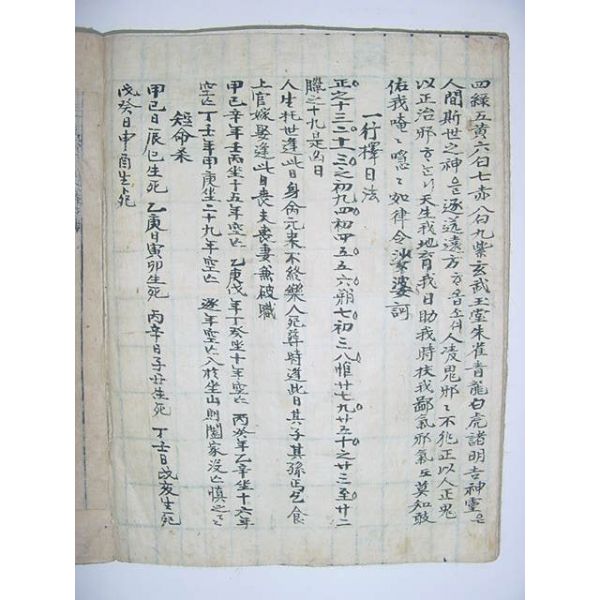 四綠五黃六白七赤八白九紫玄武玉堂朱雀青龍白虎諸明吉神靈은
人間斯世之神으로逐送遠方하옵소서人凌鬼邪〻不犯正以人正鬼
以正治邪하소서天生我地育我日助我時扶我鄙氣邪氣立莫知敢
佑我唵〻喼〻如律令娑婆訶
一行擇日法
正之十三二十一三之初九四初四五五六朔七初三八惟廿七九廿五十之廿三至廿二
臘之十九是凶日
人生托世逢此日身貧元來不終樂人死葬時逢此日其子其孫馬乞食
上官嫁娶逢此日喪夫喪妻兼破職
甲己辛年壬丙坐十五年空亡 乙庚戊年丁癸坐十年空亡 丙癸年乙辛坐十六年
空亡 丁壬年甲庚坐二十九年空亡 逐年空亡入於坐山則闔家沒亡愼之〻
短命末
甲己日辰巳生死 乙庚日寅卯生死 丙辛日子丑生死 丁壬日戌亥生死
戊癸日申酉生死